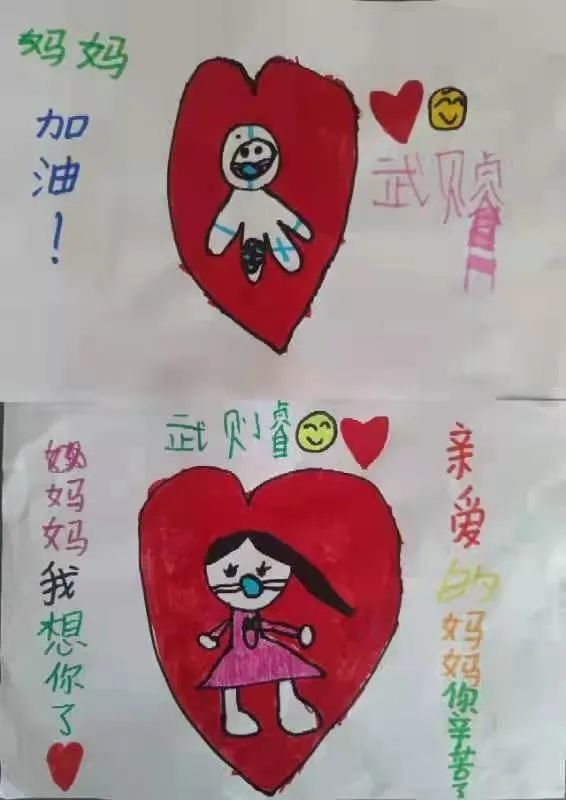 妈妈
加油！
武则睿
武则睿
妈妈
妈我想你了
亲爱的妈妈你辛苦了